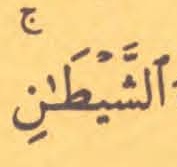 ٱلشَّيْطَـٰنِ ۚ